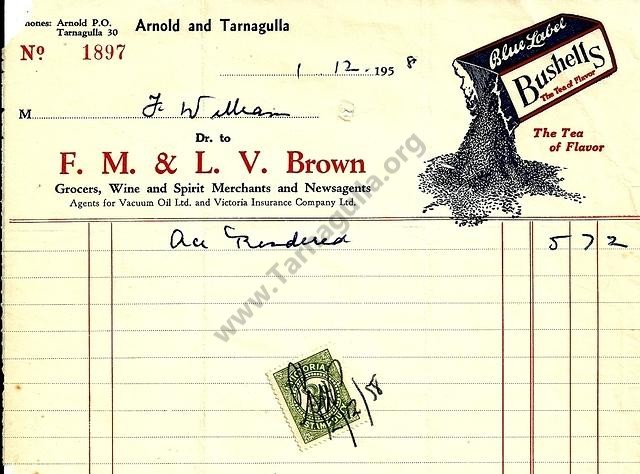 hones: Arnold P.O.
Tarnagulla 30
Arnold and Tarnagulla
No 1897
1 . 12 . 1958
M F. William
Dr. to
F. M. & L. V. Brown
Grocers, Wine and Spirit Merchants and Newsagents
Agents for Vacuum Oil Ltd. and Victoria Insurance Company Ltd.
Blue Label
Bushells
The Tea of Flavor
The Tea
of Flavor
Acc Rendered 5 7 2
www.Tarnagulla.org
VICTORIA
2/12/58